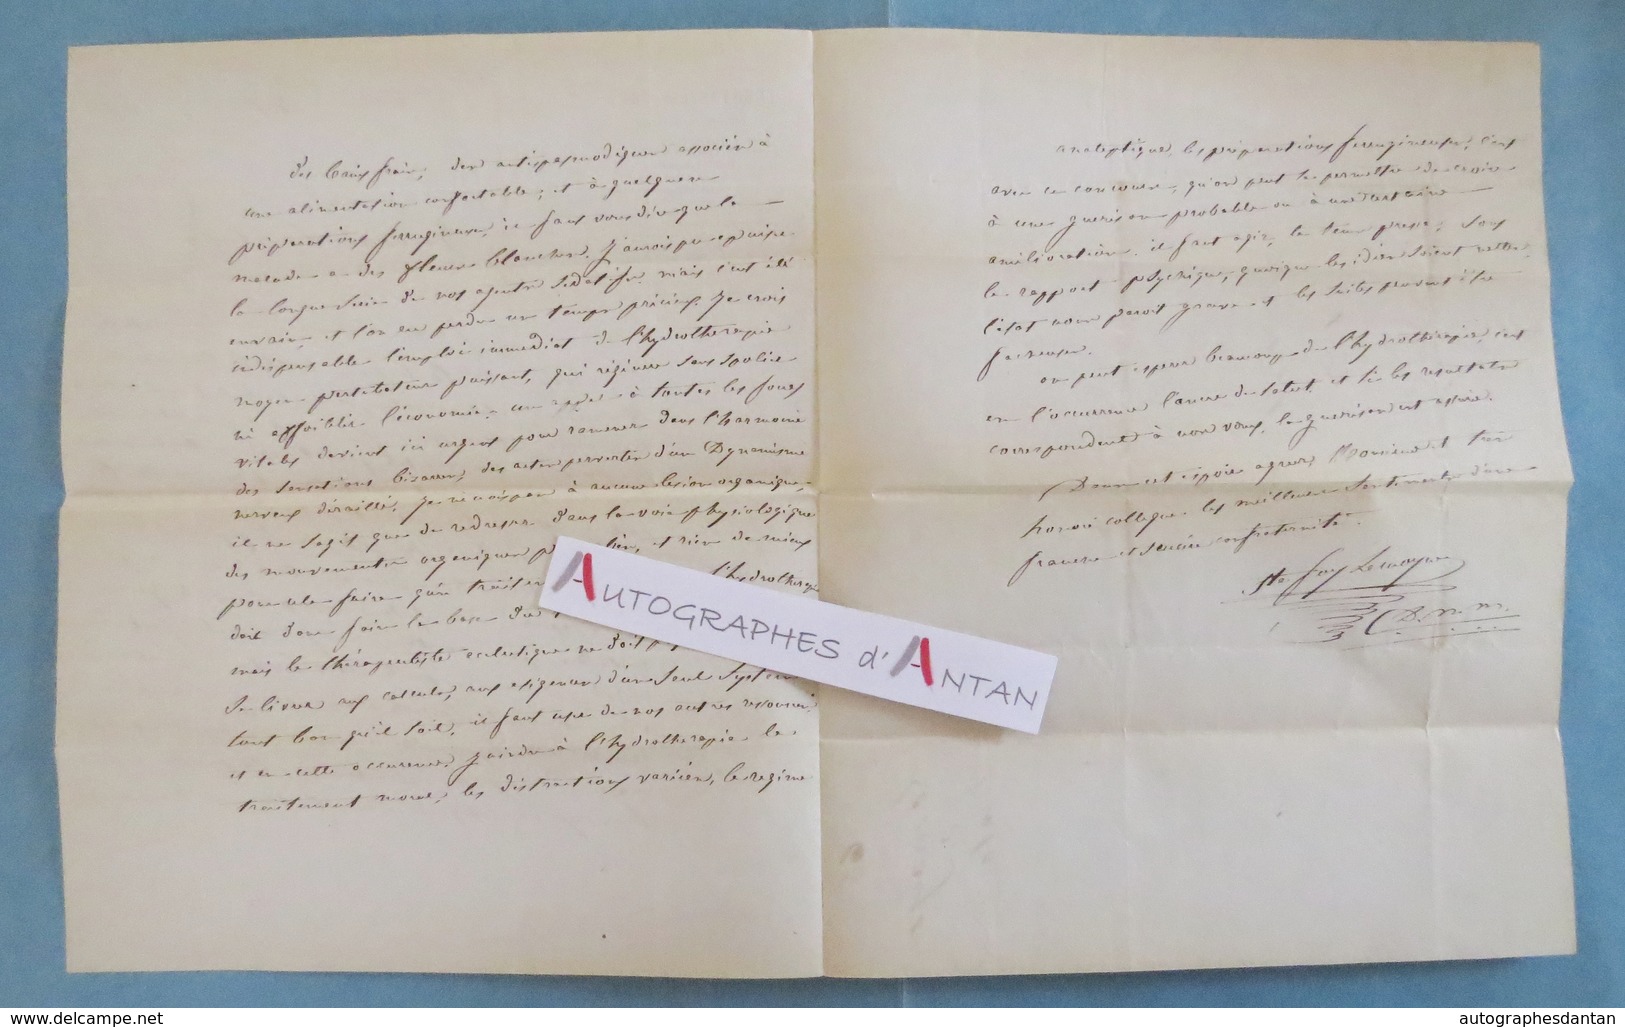 des bains frais; des antispasmodiques associés à
une alimentation confortable; et à quelques
préparations ferrugineuses, il faut vous dire que la
malade a des flueurs blanches. J'aurois pu epuiser
la longue serie de nos agents sedatifs. mais c'eut été
en vain, et l'on eu perdu un temps précieux. Je crois
indispensable l'emploi immediat de l'hydrotherapie
moyen perturbateur puissant, qui régénère sans spolier
ni affoiblir l'économie. un appel à toutes les forces
vitales devient ici urgent pour ramener dans l'harmonie
des sensations bizarres, des actes pervertis d'un Dynamisme
nerveux déraillé. Je ne crois pas à aucune lésion organique,
il ne s'agit que de redresser dans la voie physiologique
des mouvements organiques et rien de mieux
pour cela faire qu'un l'hydrothérapie
doit donc faire la base du
mais le thérapeutiste eclectique ne doit
se livrer aux calculs, aux exigences d'un seul systeme
tout bon qu'il soit, il faut user de nos autres ressources
et en cette occurence, joindre à l'hydrotherapie le
traitement moral, les distractions variées, le regime
analeptique, les préparations ferrugineuses; c'est
avec ce concours, qu'on peut se permettre de croire
à une guerison probable ou à une certaine
amélioration. il faut agir, le tems presse; sous
le rapport psychique, quoique les idées soient nettes
l'état nous paroit grave et les suites peuvent être
facheuses.
on peut esperer beaucoup de l'hydrothérapie, c'est
en l'occurrence l'ancre de salut, et si les resultats
correspondent à nos vœux, la guerison est assurée.
Dans cet espoir agréez, Monsieur et très
honoré collegue les meilleurs sentiments d'une
franche et sincère confraternité.
Ste foy Lemoyne
D. m. m.
AUTOGRAPHES d'ANTAN
www.delcampe.net
autographesdantan